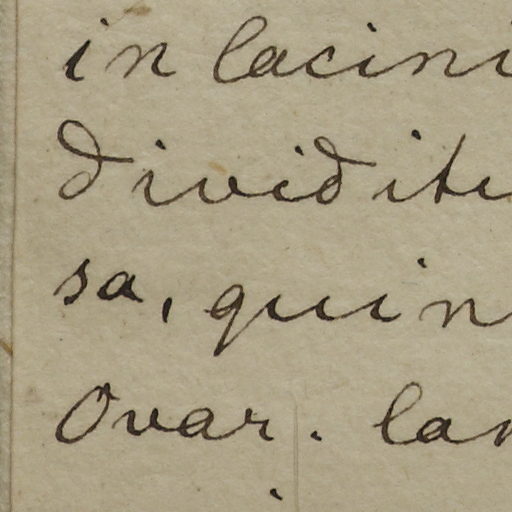 in lacini
dividite
sa, quin
Ovar. lan